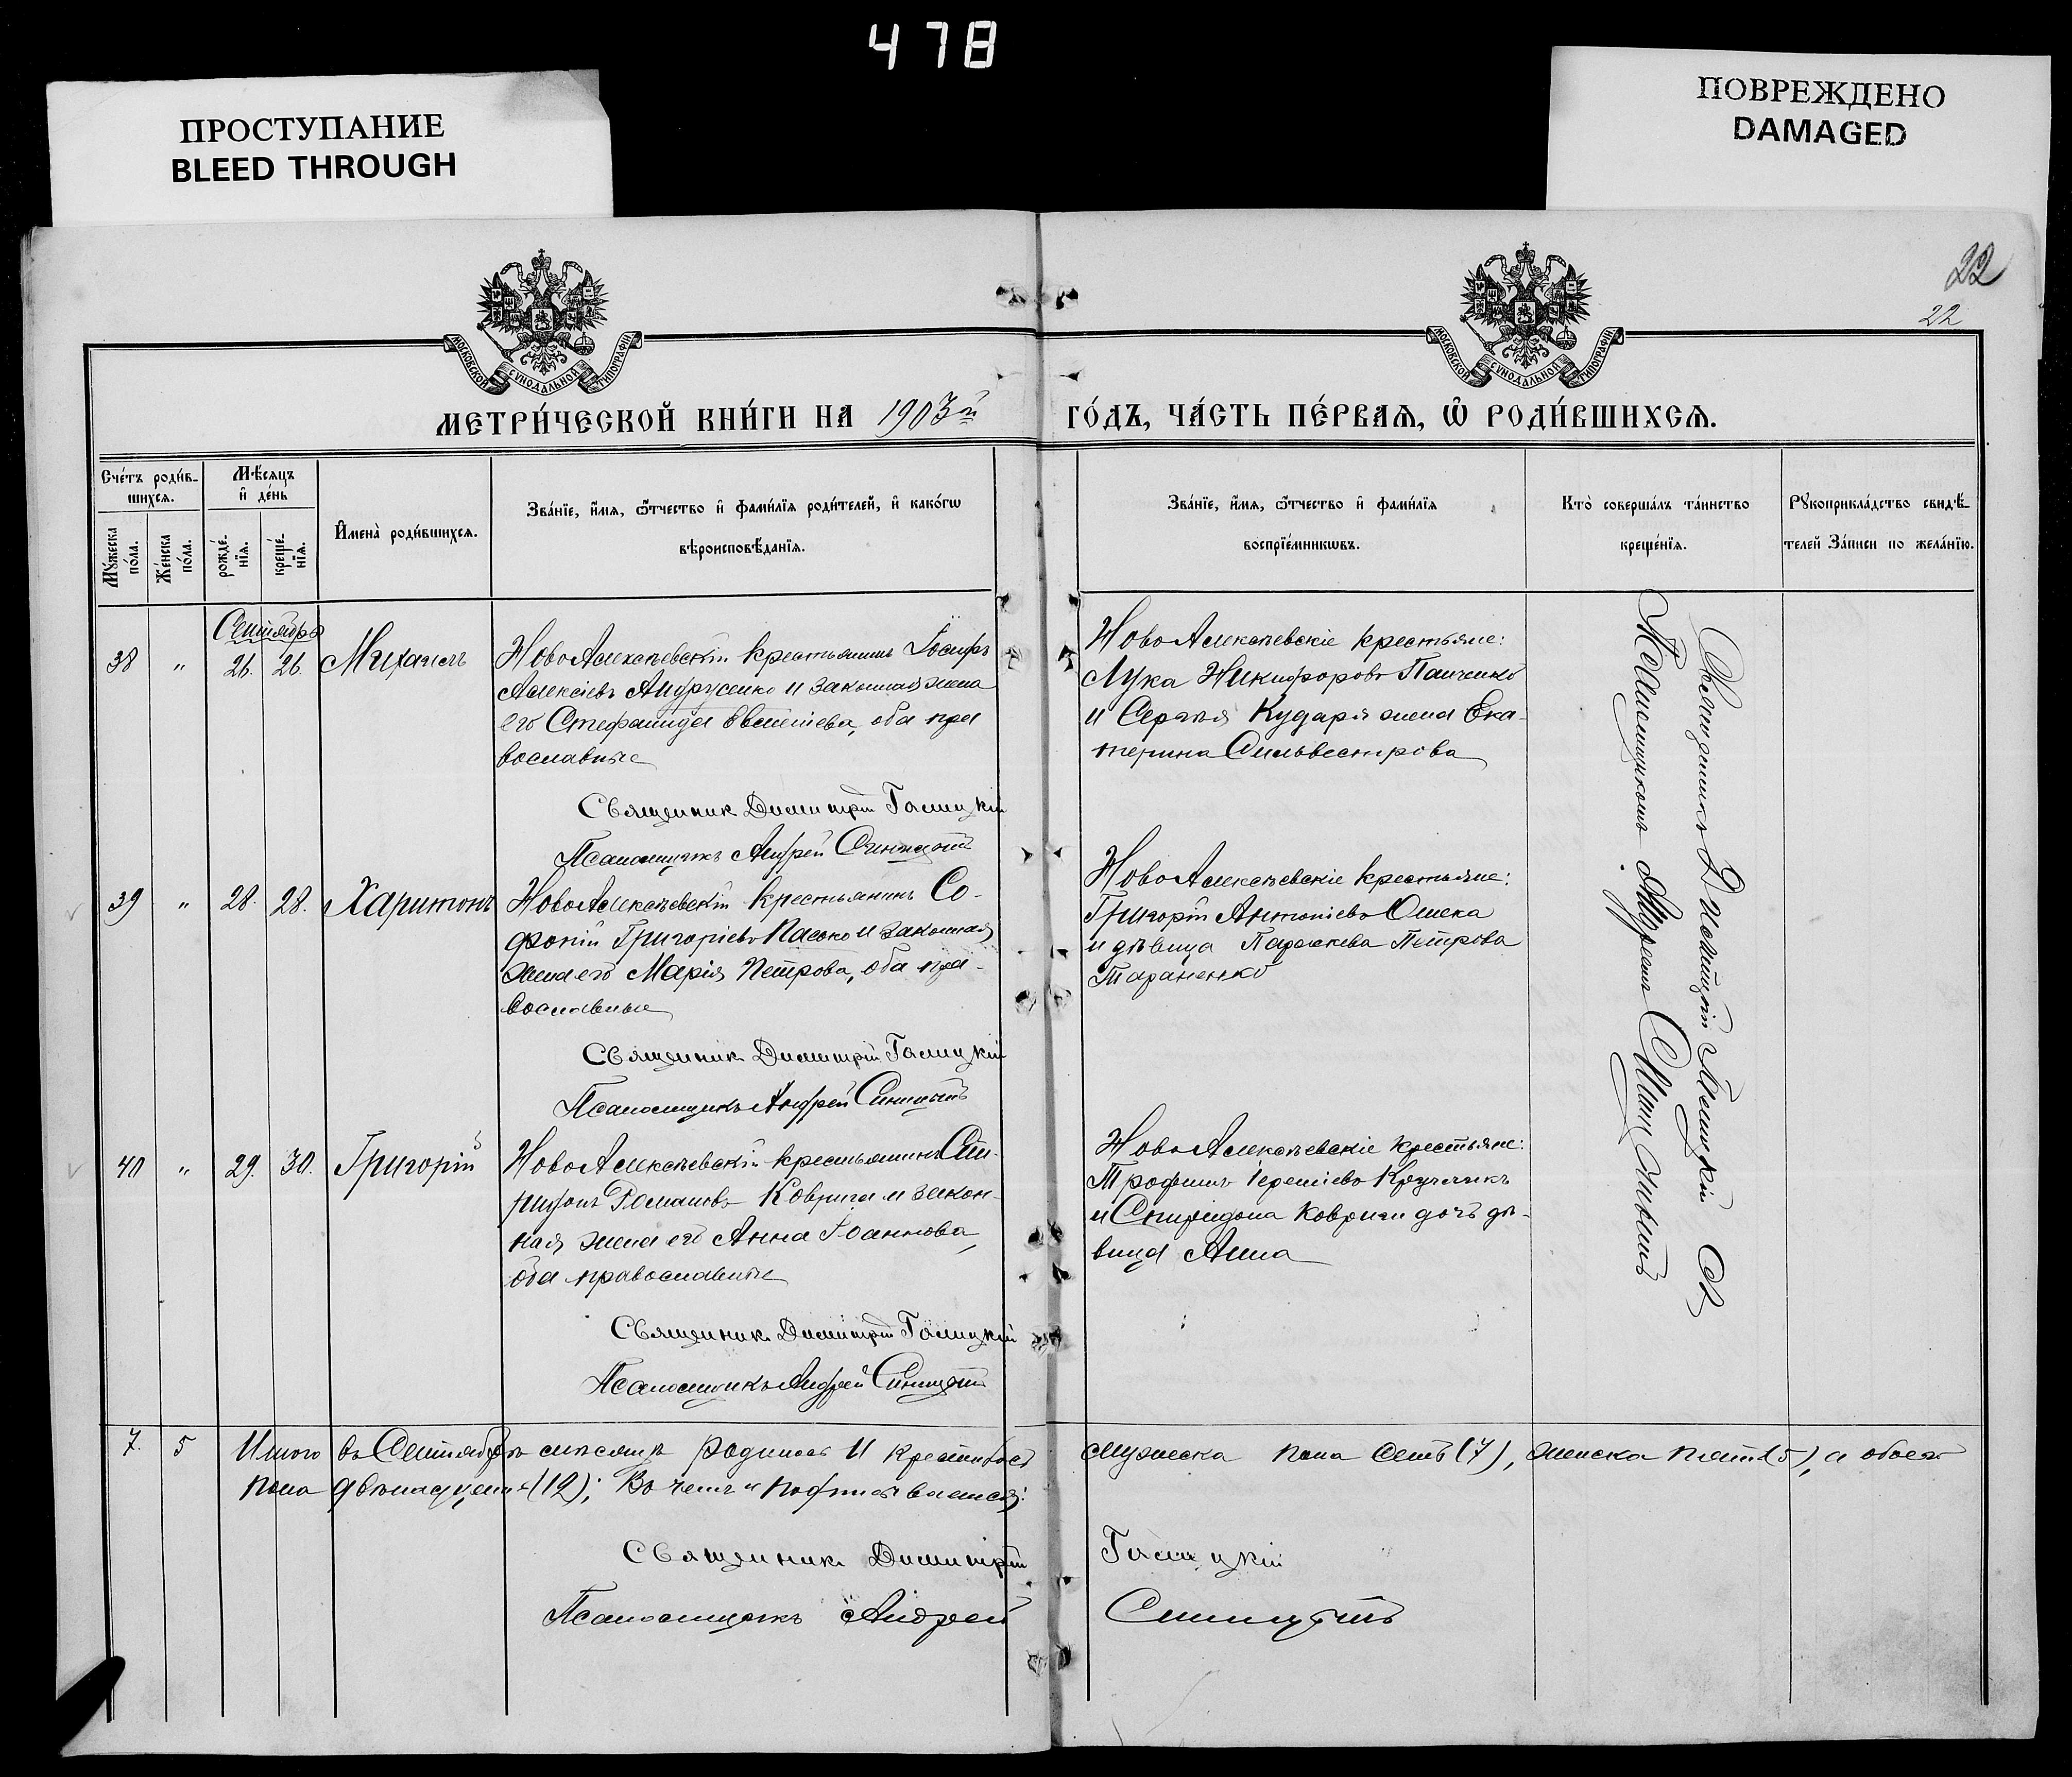 478
ПРОСТУПАНИЕ
BLEED THROUGH
ПОВРЕЖДЕНО
DAMAGED
22
22
МОСКОВСКОЙ СѴНОДАЛЬНОЙ ТИПОГРАФІИ
МОСКОВСКОЙ СѴНОДАЛЬНОЙ ТИПОГРАФІИ
МЕТРИ́ЧЕСКОЙ КНИ́ГИ НА 1903й ГО́ДЪ, ЧА́СТЬ ПЕ́РВАѦ, Ѡ҆ РОДИ́ВШИХСѦ.
Сче́тъ роди́в-
шихсѧ.
Мꙋ́жеска по́ла.
Же́нска по́ла.
Мѣ́сѧцъ
и҆ де́нь
рожде́-
нїѧ.
креще́-
нїѧ.
И҆мена̀ роди́вшихсѧ.
Зва́нїе, и҆́мѧ, ѻ҆́тчество и҆ фами́лїѧ роди́телей, и҆ како́гѡ
вѣроисповѣ́данїѧ.
Зва́нїе, и҆́мѧ, ѻ҆́тчество и҆ фами́лїѧ
воспрїе́мникѡвъ.
Кто̀ соверша́лъ та́инство
креще́нїѧ.
Рꙋкоприкла́дство свидѣ́-
телей За́писи по жела́нїю.
Сентябрь
38 " 26. 26. Михаилъ
НовоАлексѣевскій крестьянинъ Іосифъ
Алексіевъ Андрусенко и законная жена
его Стефанида Евсевіева, оба пра
вославные
Священникъ Димитрій Галицкій
Псаломщикъ Андрей
НовоАлексѣевскіе крестьяне:
Лука Никифоровъ Панченко
и Сергія Кударя жена Ека-
терина Сильвестрова
39 " 28. 28. Харитонъ
НовоАлексѣевскій крестьянинъ Со-
фоній Григоріевъ Пасько и законная
жена его Марія Петрова, оба пра-
вославные
Священникъ Димитрій Галицкій
Псаломщикъ Андрей
НовоАлексѣевскіе крестьяне:
Григорій Антоніевъ Олека
и дѣвица Параскева Петрова
Тараненко
40 " 29. 30. Григорій
НовоАлексѣевскій крестьянинъ Спи-
ридонъ Романовъ Коврига и закон-
ная жена его Анна Іоаннова,
оба православные
Священникъ Димитрій Галицкій
Псаломщикъ Андрей
НовоАлексѣевскіе крестьяне:
Трофимъ Іереміевъ Кручекъ
и Спиридона Ковриги дочь дѣ-
вица Анна
Священникъ Димитрій Галицкій съ
Псаломщикомъ Андреемъ
7. 5 Итого въ Сентябрѣ мѣсяцѣ родилось и крестилось мужеска пола семь (7), женска пять (5), а обоего
пола двѣнадцать (12); въ чемъ и подписываемся:
Священникъ Димитрій Галицкій
Псаломщикъ Андрей